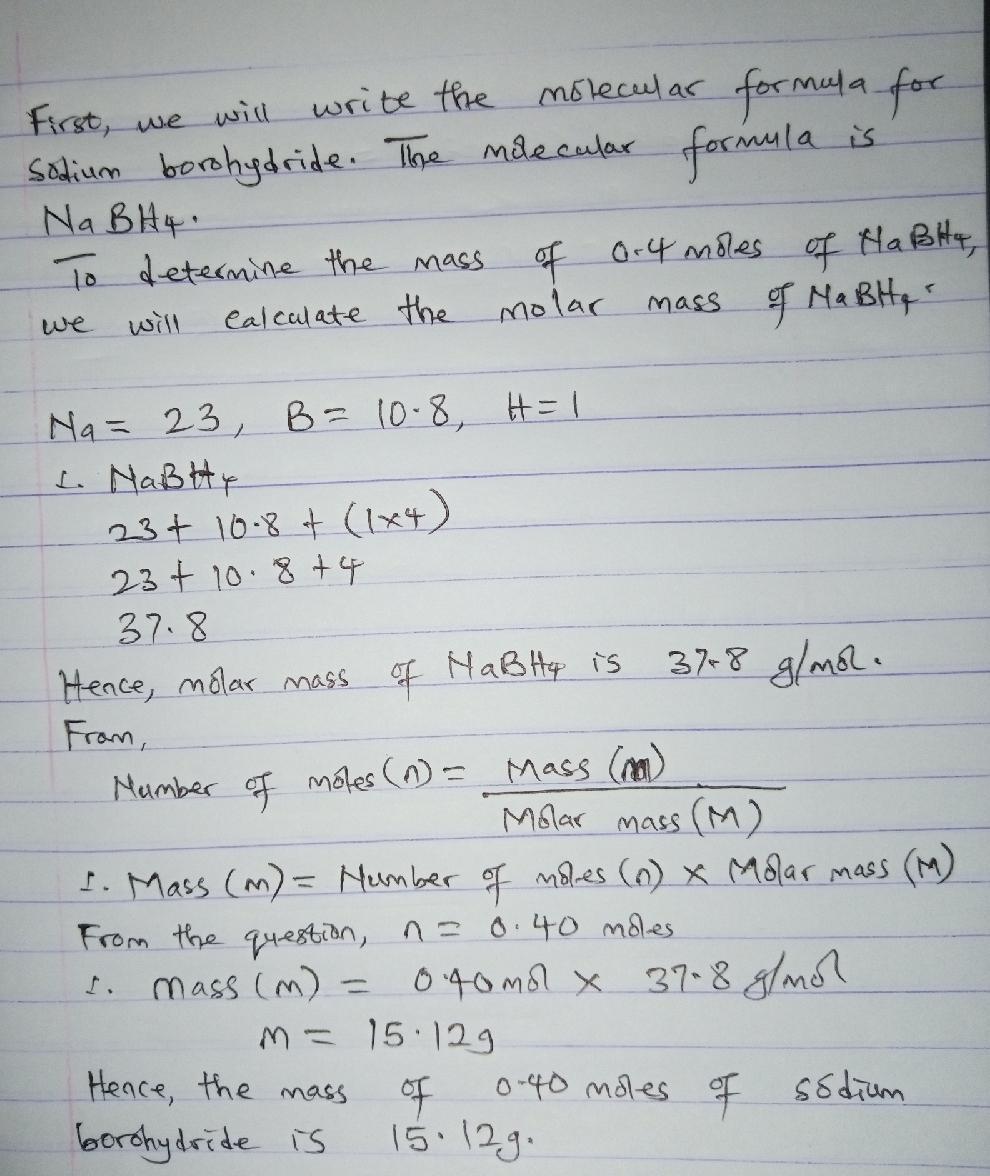 First, we will write the molecular formula for
Sodium borohydride. The molecular formula is
NaBH4.
To determine the mass of 0.4 moles of NaBH4,
we will calculate the molar mass of NaBH4.
Na = 23, B = 10.8, H = 1
∴ NaBH4
23 + 10.8 + (1x4)
23 + 10.8 + 4
37.8
Hence, molar mass of NaBH4 is 37.8 g/mol.
From,
Number of moles (n) = Mass (m)
Molar mass (M)
∴ Mass (m) = Number of moles (n) x Molar mass (M)
From the question, n = 0.40 moles
∴ mass (m) = 0.40mol x 37.8 g/mol
m = 15.12g
Hence, the mass of 0.40 moles of sodium
borohydride is 15.12g.